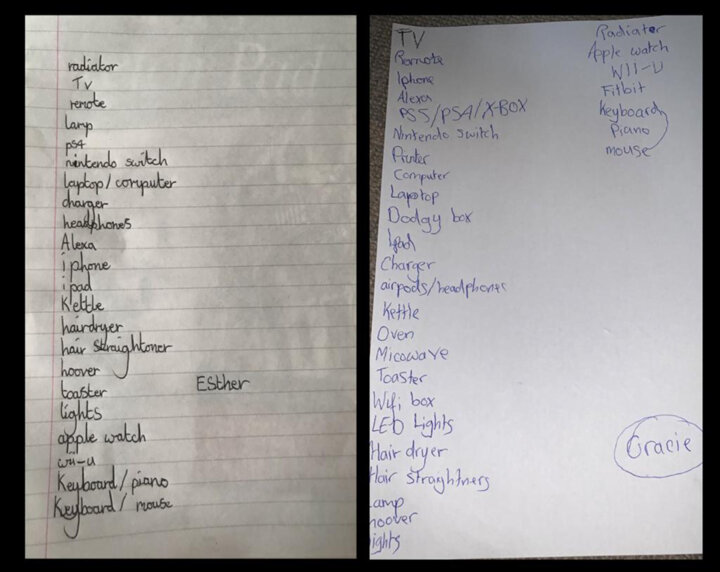 radiator
TV
remote
lamp
ps4
nintendo switch
laptop/computer
charger
headphones
Alexa
iphone
ipad
Kettle
hairdryer
hair straightoner
hoover
toaster
lights
apple watch
wii-u
Keyboard/piano
Keyboard/ mouse
Esther
TV
Remote
Iphone
Alexa
PS5/PS4/X-BOX
Nintendo switch
Printer
Computer
Lapotop
Dodgy box
Ipad
Charger
airpods/headphones
Kettle
Oven
Micowave
Toaster
Wifi box
LED Lights
Hair dryer
Hair straightners
amp
hoover
ights
Radiator
Apple watch
WII-U
Fitbit
Keyboard
Piano
mouse
Gracie